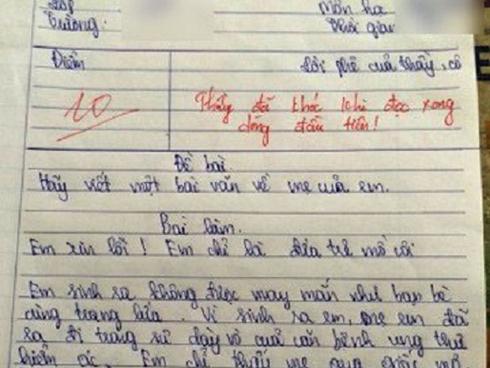 Lớp
Môn học
Trường:
Thời gian
Điểm
Lời phê của thầy, cô
10
Thầy đã khóc khi đọc xong
dòng đầu tiên!
Đề bài.
Hãy viết một bài văn về mẹ của em.
Bài làm.
Em xin lỗi! Em chỉ là đứa trẻ mồ côi
Em sinh ra không được may mắn như bạn bè
cùng trang lứa. Vì sinh ra em, mẹ em đã
ra đi trong sự dày vò của căn bệnh ung thư
hiểm ác. Em chỉ thấy mẹ qua giấc mơ,